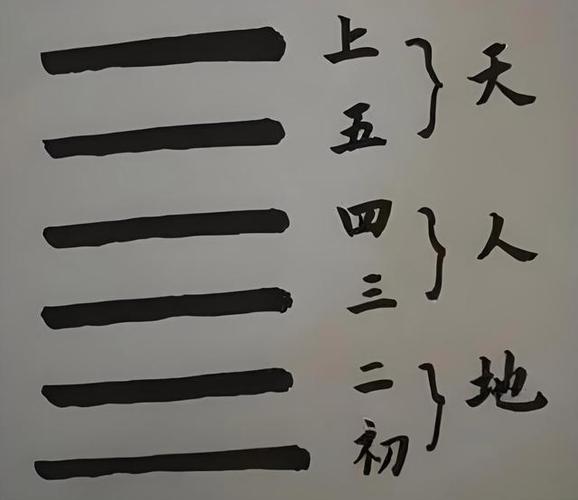 上
五
天
四
三
人
二
初
地